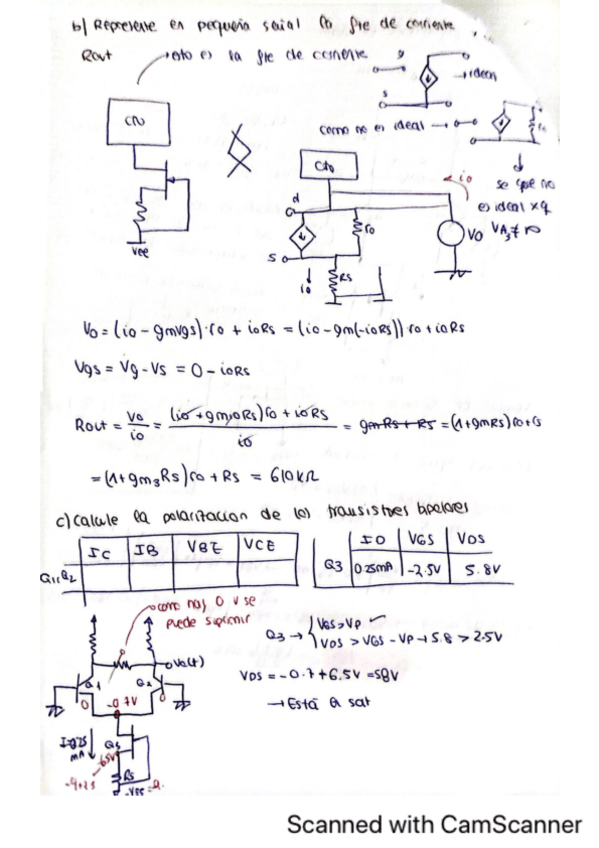 b) Represente en pequeña señal la fte de corriente
Rout → esto es la fte de corriente
g
→ ideal
s
CD
como no es ideal →
ro
CD
< io
se que no
es ideal xq
d
G
ro
Vo
S o
Rs
io
Vee
Vo = (io - gmvgs)·ro + ioRs = (io - gm(-ioRs))·ro + ioRs
Vgs = Vg - Vs = 0 - ioRs
Rout = Vo/io = (io + gmioRs)ro + ioRs / io = gmRs + Rs = (1+gmRs)ro+rs
= (1+gm3Rs)ro + Rs = 610kΩ
c) Calcule la polarización de los transistores bipolares
IC IB VBE VCE
Q1,Q2
ID VGS VDS
Q3 0.25mA -2.5V 5.8V
como hay 0 v se
puede suprimir
Q3 → VGS > VP
VDS > VGS - VP → 5.8 > 2.5V
Vo(t)
Q1 Q2
0 -0.7V 0
VDS = -0.7 + 6.5V = 5.8V
→ Está en sat
mA
Q3
-6.5V
Rs
Scanned with CamScanner